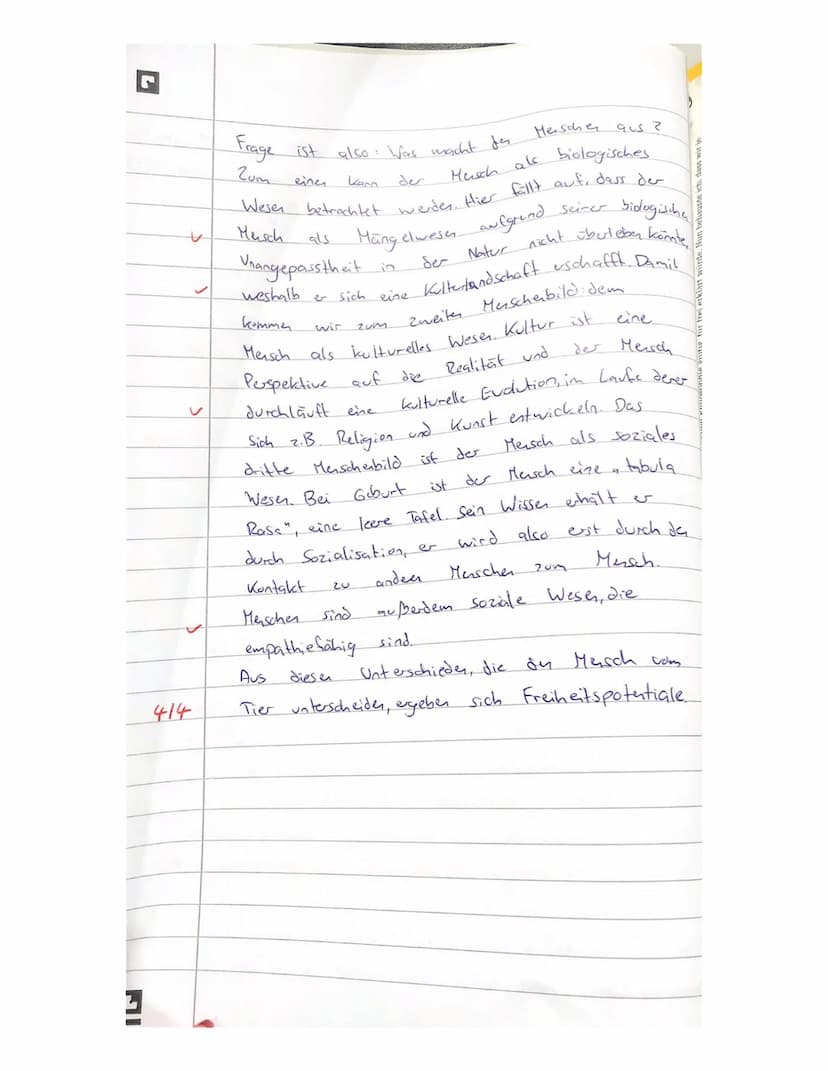 Frage ist also: Was macht den Menschen aus?
Zum einen kann der Mensch als biologisches
Wesen betrachtet werden. Hier fällt auf, dass der
Mensch als Mängelwesen aufgrund seiner biologischen
Unangepasstheit in der Natur nicht überleben könnte,
weshalb er sich eine Kulturlandschaft erschafft. Damit
kommen wir zum zweiten Menschenbild: dem
Mensch als kulturelles Wesen. Kultur ist eine
Perspektive auf die Realität und der Mensch
durchläuft eine kulturelle Evolution, im Laufe derer
sich z.B. Religion und Kunst entwickeln. Das
dritte Menschenbild ist der Mensch als soziales
Wesen. Bei Geburt ist der Mensch eine „tabula
Rasa", eine leere Tafel. Sein Wissen erhält er
durch Sozialisation, er wird also erst durch den
Kontakt zu anderen Menschen zum Mensch.
Menschen sind außerdem soziale Wesen, die
empathiefähig sind.
Aus diesen Unterschieden, die den Mensch vom
4/4 Tier unterscheiden, ergeben sich Freiheitspotentiale.